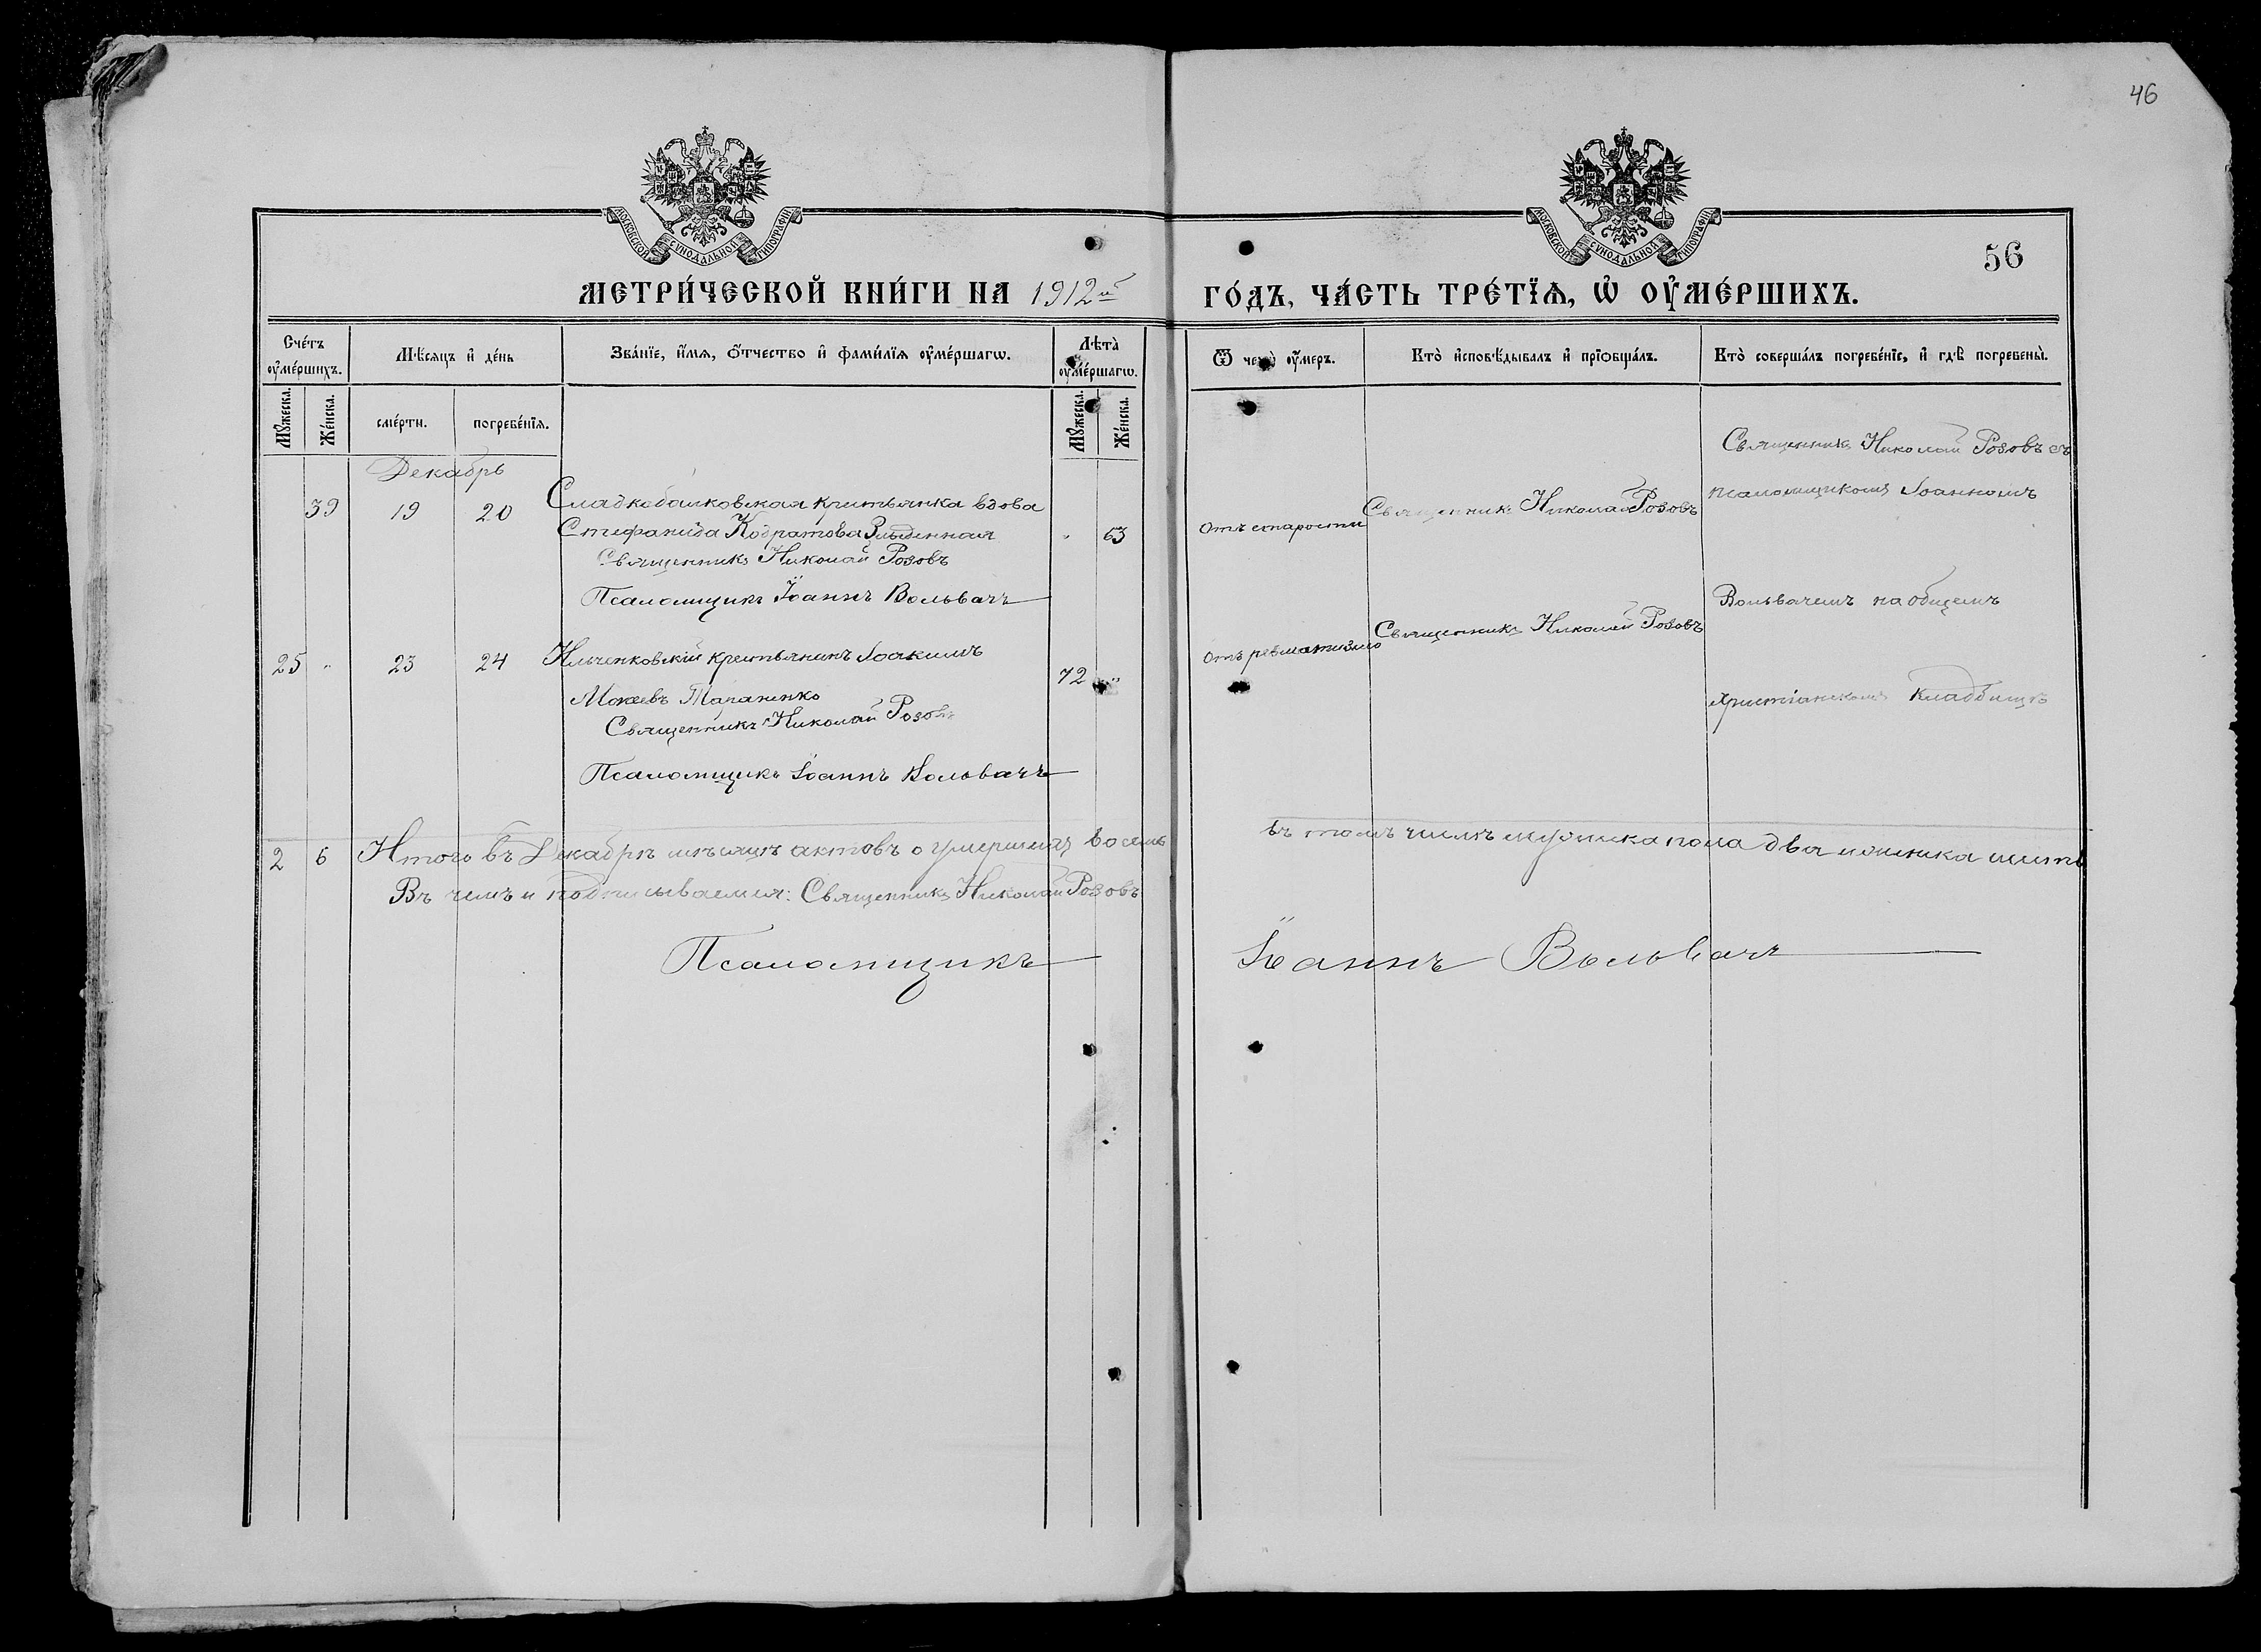 46
МОСКОВСКОЙ СѴНОДАЛЬНОЙ ТИПОГРАФІИ
МОСКОВСКОЙ СѴНОДАЛЬНОЙ ТИПОГРАФІИ
56
МЕТРИ́ЧЕСКОЙ КНИ́ГИ НА 1912й ГО́ДЪ, ЧА́СТЬ ТРЕ́ТЇѦ, Ѡ҆ ОУ҆МЕ́РШИХЪ.
Сче́тъ оу҆ме́ршихъ.
Мѣ́сяцъ и҆ де́нь
Зва́нїе, и҆́мя, ѻ҆́тчество и҆ фами́лїя оу҆ме́ршагѡ.
Лѣта̀ оу҆ме́ршагѡ.
Ѿ чегѡ̀ оу҆́меръ.
Кто̀ и҆сповѣ́дывалъ и҆ прїѡбща́лъ.
Кто̀ соверша́лъ погребе́нїе, и҆ гдѣ̀ погребены̀.
Мꙋ́жеска.
Же́нска.
сме́рти.
погребе́нїя.
Мꙋ́жеска.
Же́нска.
Декабрь
39 19 20 Сладкобалковская крестьянка вдова
Стефанида Кодратова " 63
Священникъ Николай Розовъ
Псаломщикъ Іоаннъ Вольвачъ
отъ старости
Священникъ Николай Розовъ
Священникъ Николай Розовъ съ
псаломщикомъ Іоанномъ
Вольвачемъ на общемъ
христіанскомъ кладбищѣ
25 " 23 24 Ильченковскій крестьянинъ Іоакимъ
Мокеевъ Тараненко 72 "
Священникъ Николай Розовъ
Псаломщикъ Іоаннъ Вольвачъ
отъ ревматизма
Священникъ Николай Розовъ
2 6 Итого въ Декабрѣ мѣсяцѣ актовъ о умершихъ восемь въ томъ числѣ мужеска пола два и женска шесть
Въ чемъ и подписываемся: Священникъ Николай Розовъ
Псаломщикъ Іоаннъ Вольвачъ